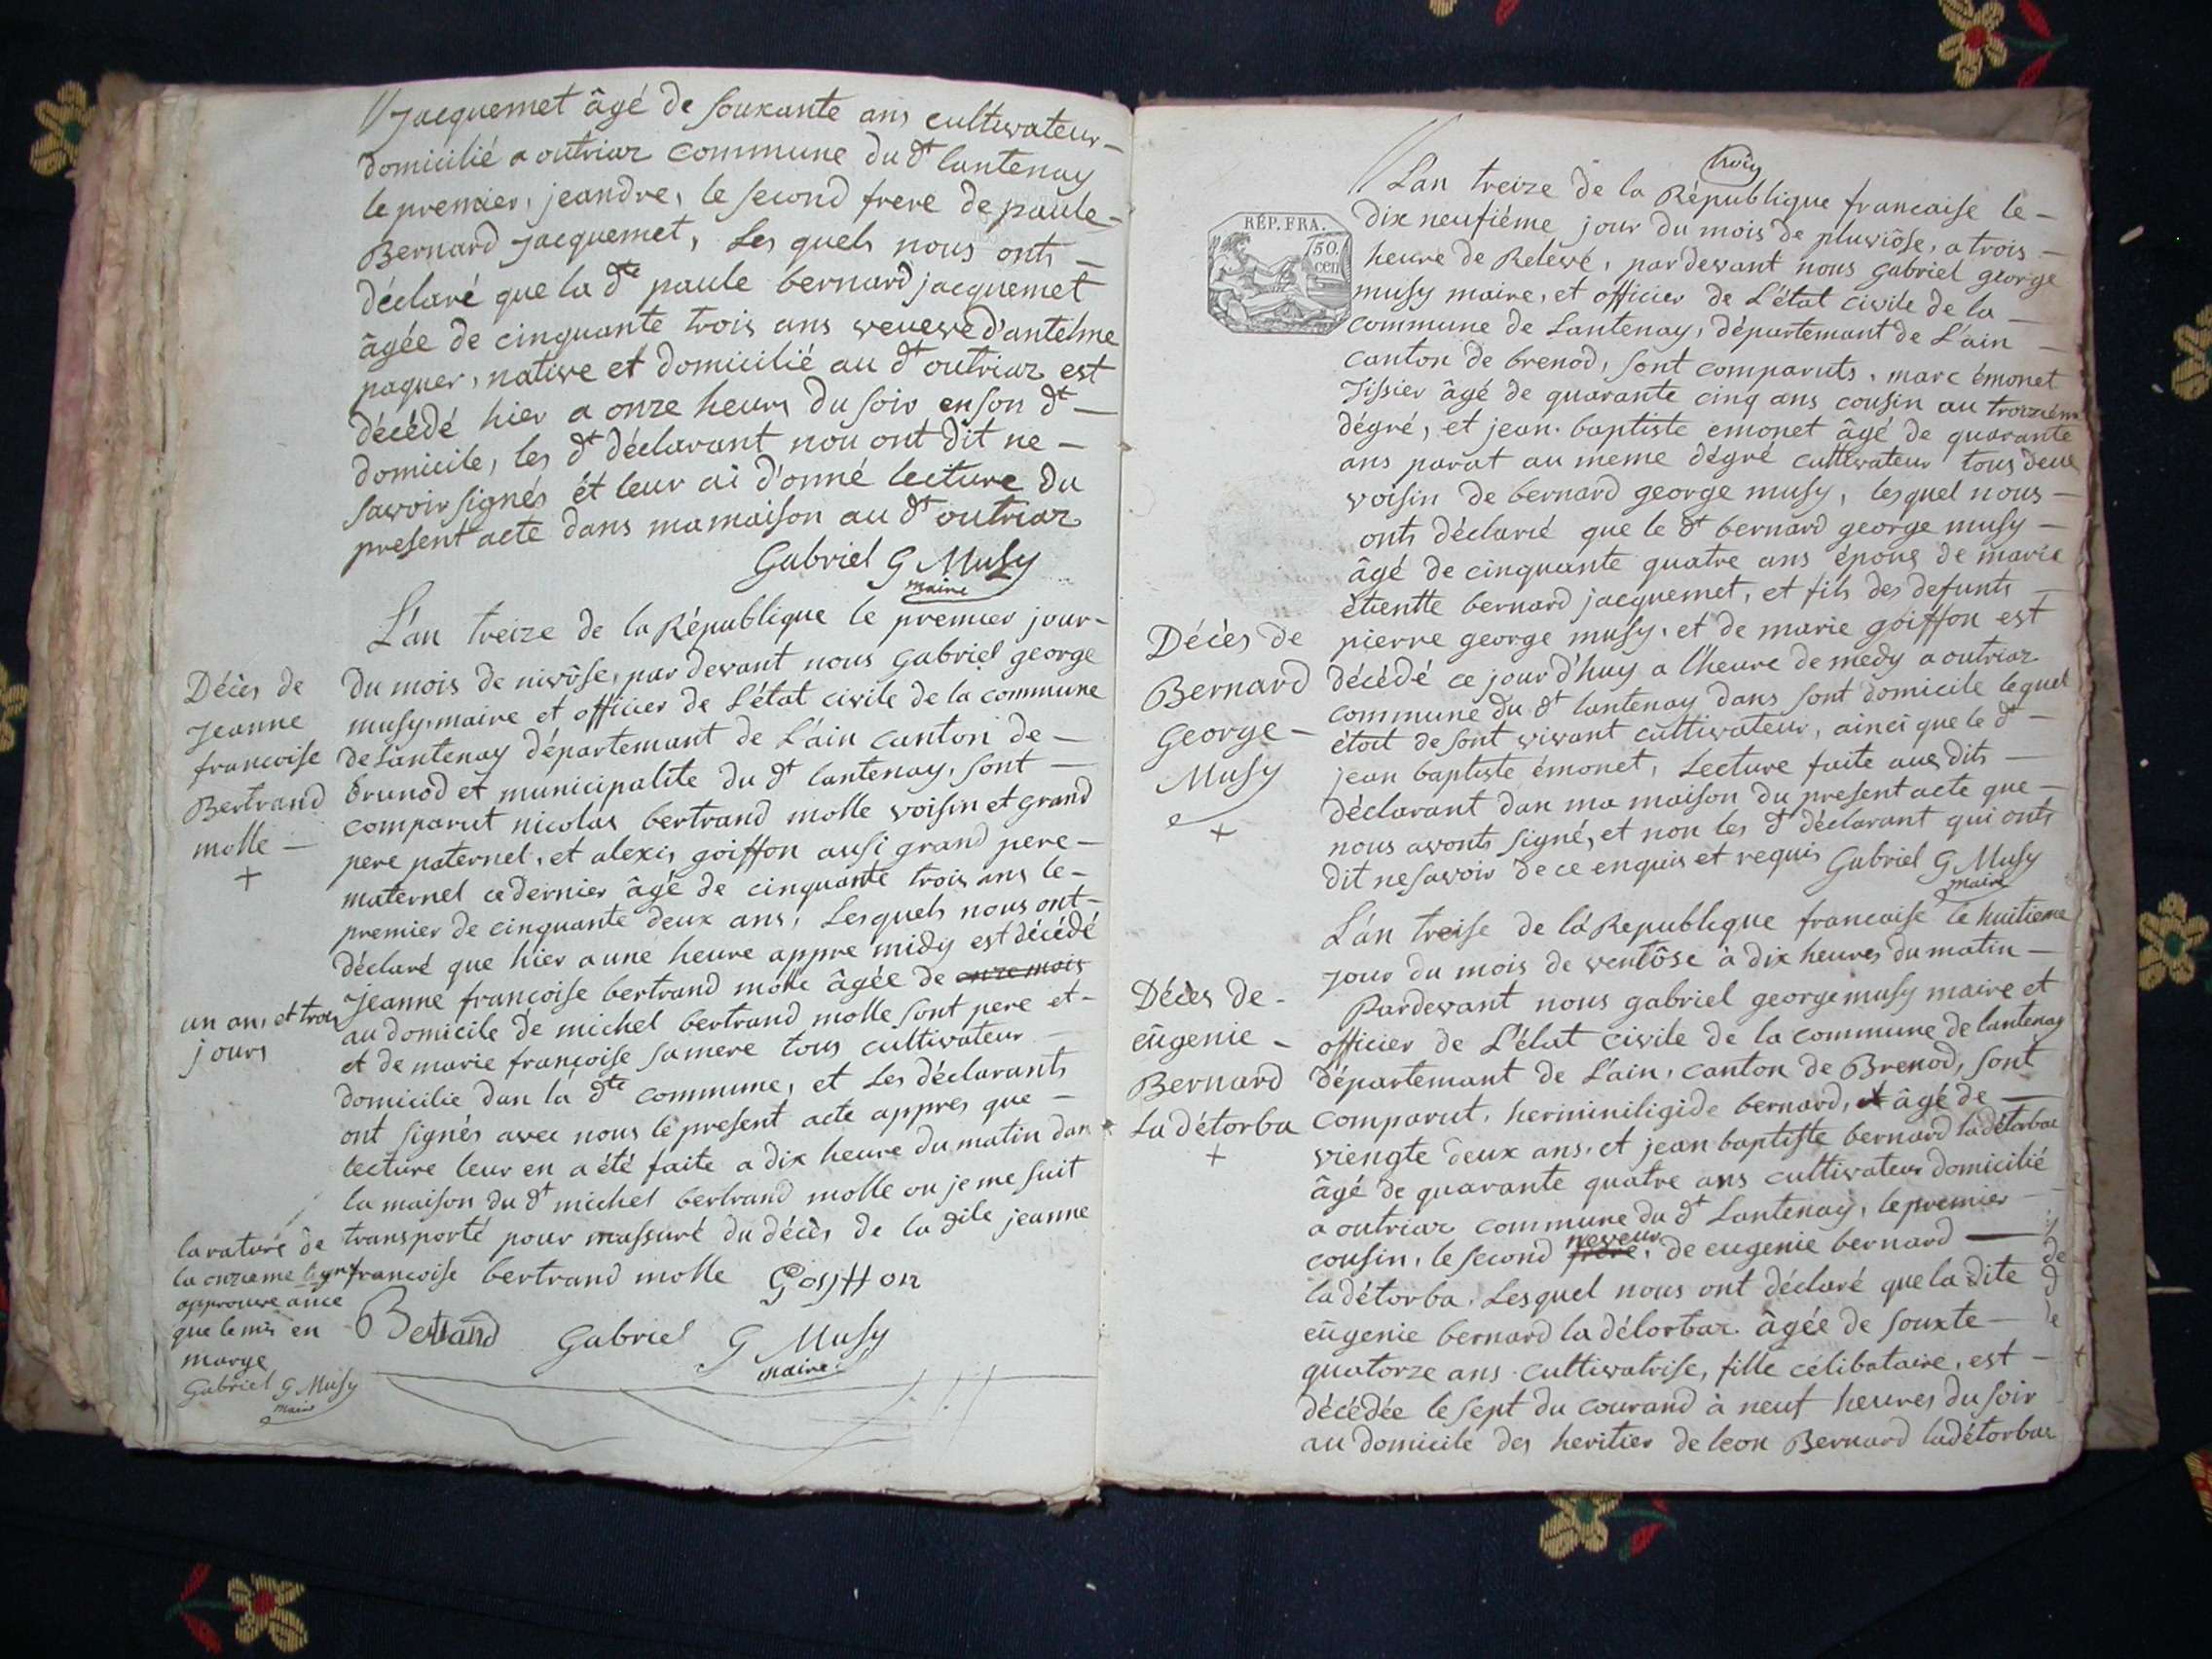 Jacquemet âgé de soixante ans cultivateur
domicilié a outriaz commune du dt lantenay
le premier, jeandre, le second frere de paule
Bernard Jacquemet, Les quels nous onts
déclaré que la dte paule bernard jacquemet
âgée de cinquante trois ans veueve d'antelme
paquer, native et domicilié au dt outriaz est
décédé hier a onze heurs du soir en son dt
domicile, les dt déclarant nou ont dit ne
savoir signés et leur ai d'onné lecture du
present acte dans ma maison au dt outriaz
Gabriel G Musy
maire
L'an treize de la République le premier jour
Décès de
Jeanne
francoise
Bertrand
molle
+
du mois de nivôse, par devant nous gabriel george
musy, maire et officier de L'état civile de la commune
de Lantenay département de L'ain canton de
brunod et municipalite du dt lantenay, sont
comparut nicolas bertrand molle voisin et grand
pere paternel, et alexis goiffon ausi grand pere
maternel ce dernier âgé de cinquante trois ans le
premier de cinquante deux ans, Lesquels nous ont
déclaré que hier a une heure appre midy est décédé
Jeanne francoise bertrand molle âgée de onze mois
un ans et trois
jours
au domicile de michel bertrand molle sont pere et
et de marie françoise sa mere tous cultivateur
domicilie dan la dte commune, et Les déclarants
ont signés avec nous le present acte appres que
lecture leur en a été faite a dix heure du matin dan
la maison du dt michel bertrand molle ou je me suit
transporté pour massuré du décès de la dite jeanne
francoise bertrand molle Goiffon
la rature de
la onzieme ligne
approuve ainee
que le mis en
marge
Gabriel G Musy
maire
Bertrand Gabriel G Musy
maire
trois
REP. FRA.
50.
cen
Lan treize de la République francaise le
dix neufiéme jour du mois de pluviôse, a trois
heure de Relevé, par devant nous gabriel george
musy maire, et officier de L'état civile de la
commune de Lantenay, départemant de L'ain
canton de brenod, sont comparuts, marc émonet
Tissier âgé de quarante cinq ans cousin au troizième
dégré, et jean baptiste emonet âgé de quarante
ans parat au meme dégré cultivateur tous deux
voisin de bernard george musy, lesquel nous
onts déclaré que le dt bernard george musy
âgé de cinquante quatre ans époux de marie
étientte bernard jacquemet, et fils des defunts
Décès de
Bernard
George
Musy
+
pierre george musy, et de marie goiffon est
décédé ce jour d'huy a l'heure de medy a outriaz
commune du dt lantenay dans sont domicile lequel
étoit de sont vivant cultivateur, ainci que le dt
jean baptiste émonet, Lecture faite aux dits
déclarant dan ma maison du present acte que
nous avonts signé, et non les dt déclarant qui onts
dit ne savoir de ce enquis et requis Gabriel G Musy
maire
L'an treise de la Republique francaise le huitieme
jour du mois de ventôse à dix heures du matin
Décès de
eûgenie
Bernard
La détorba
+
Pardevant nous gabriel george musy maire et
officier de L'état civile de la commune de lantenay
département de L'ain, canton de Brenod, sont
comparut, herminiligide bernard, et âgé de
viengte deux ans, et jean baptiste bernard ladétorbaz
âgé de quarante quatre ans cultivateur domicilié
a outriaz commune du dt Lantenay, le premier
neveux
cousin, le second frere, de eugenie bernard
ladétorba. Lesquel nous ont déclaré que la dite
eûgenie bernard la détorbaz âgée de souxte
quatorze ans cultivatrise, fille célibataire, est
décédée le sept du courand à neuf heures du soir
au domicile des heritier de leon Bernard ladétorbaz